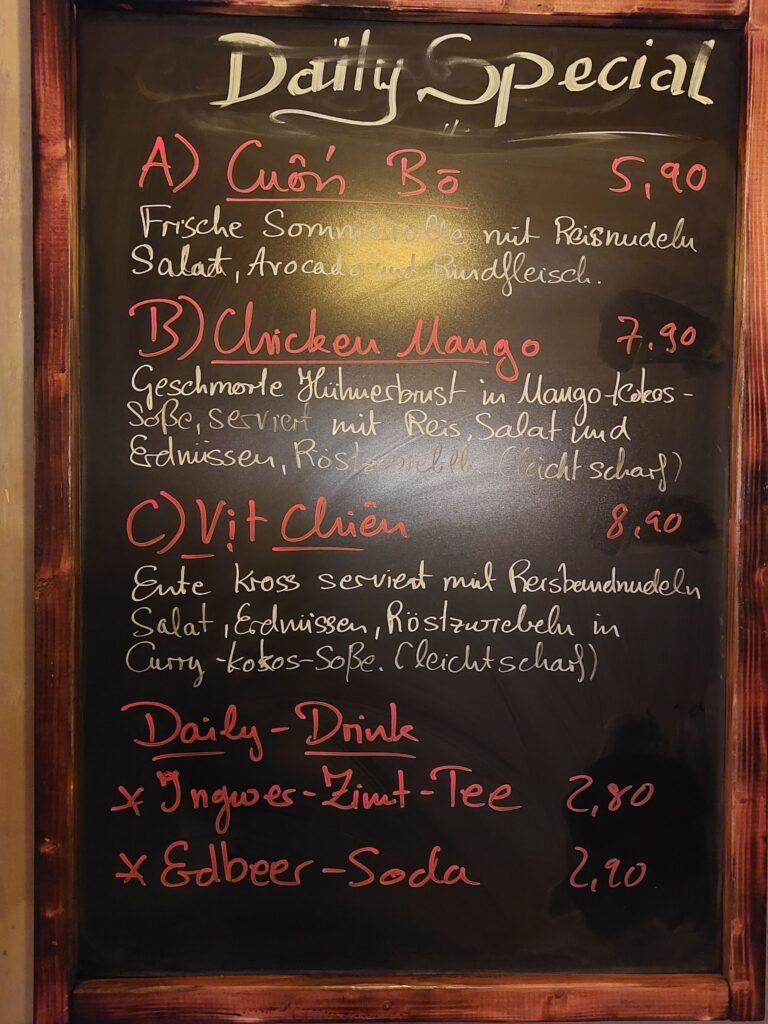 Daily Special
A) Cuốn Bō 5,90
Frische Sommerrolle mit Reisnudeln
Salat, Avocado und Rindfleisch.
B) Chicken Mango 7.90
Geschmorte Hühnerbrust in Mango-Kokos-
Soße, serviert mit Reis, Salat und
Erdnüssen, Röstzwiebeln (leicht scharf)
C) Vịt Chiên 8,90
Ente kross serviert mit Reisbandnudeln
Salat, Erdnüssen, Röstzwiebeln in
Curry-Kokos-Soße. (leicht scharf)
Daily-Drink
x Ingwer-Zimt-Tee 2,80
x Edbeer-Soda 2,90